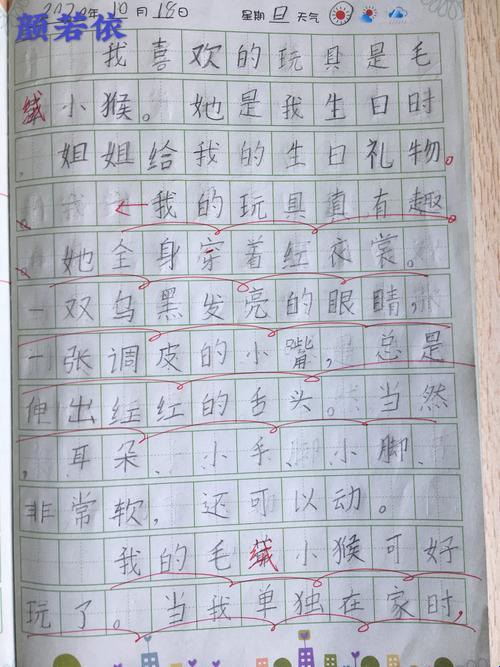 2020年10月18日 星期日 天气
颜若依
我喜欢的玩具是毛
绒小猴。她是我生日时
，姐姐给我的生日礼物。
我的玩具真有趣
她全身穿着红衣裳。
一双乌黑发亮的眼睛，
一张调皮的小嘴，总是
伸出红红的舌头。当然
，耳朵、小手、小脚、
非常软，还可以动。
我的毛绒小猴可好
玩了。当我单独在家时，